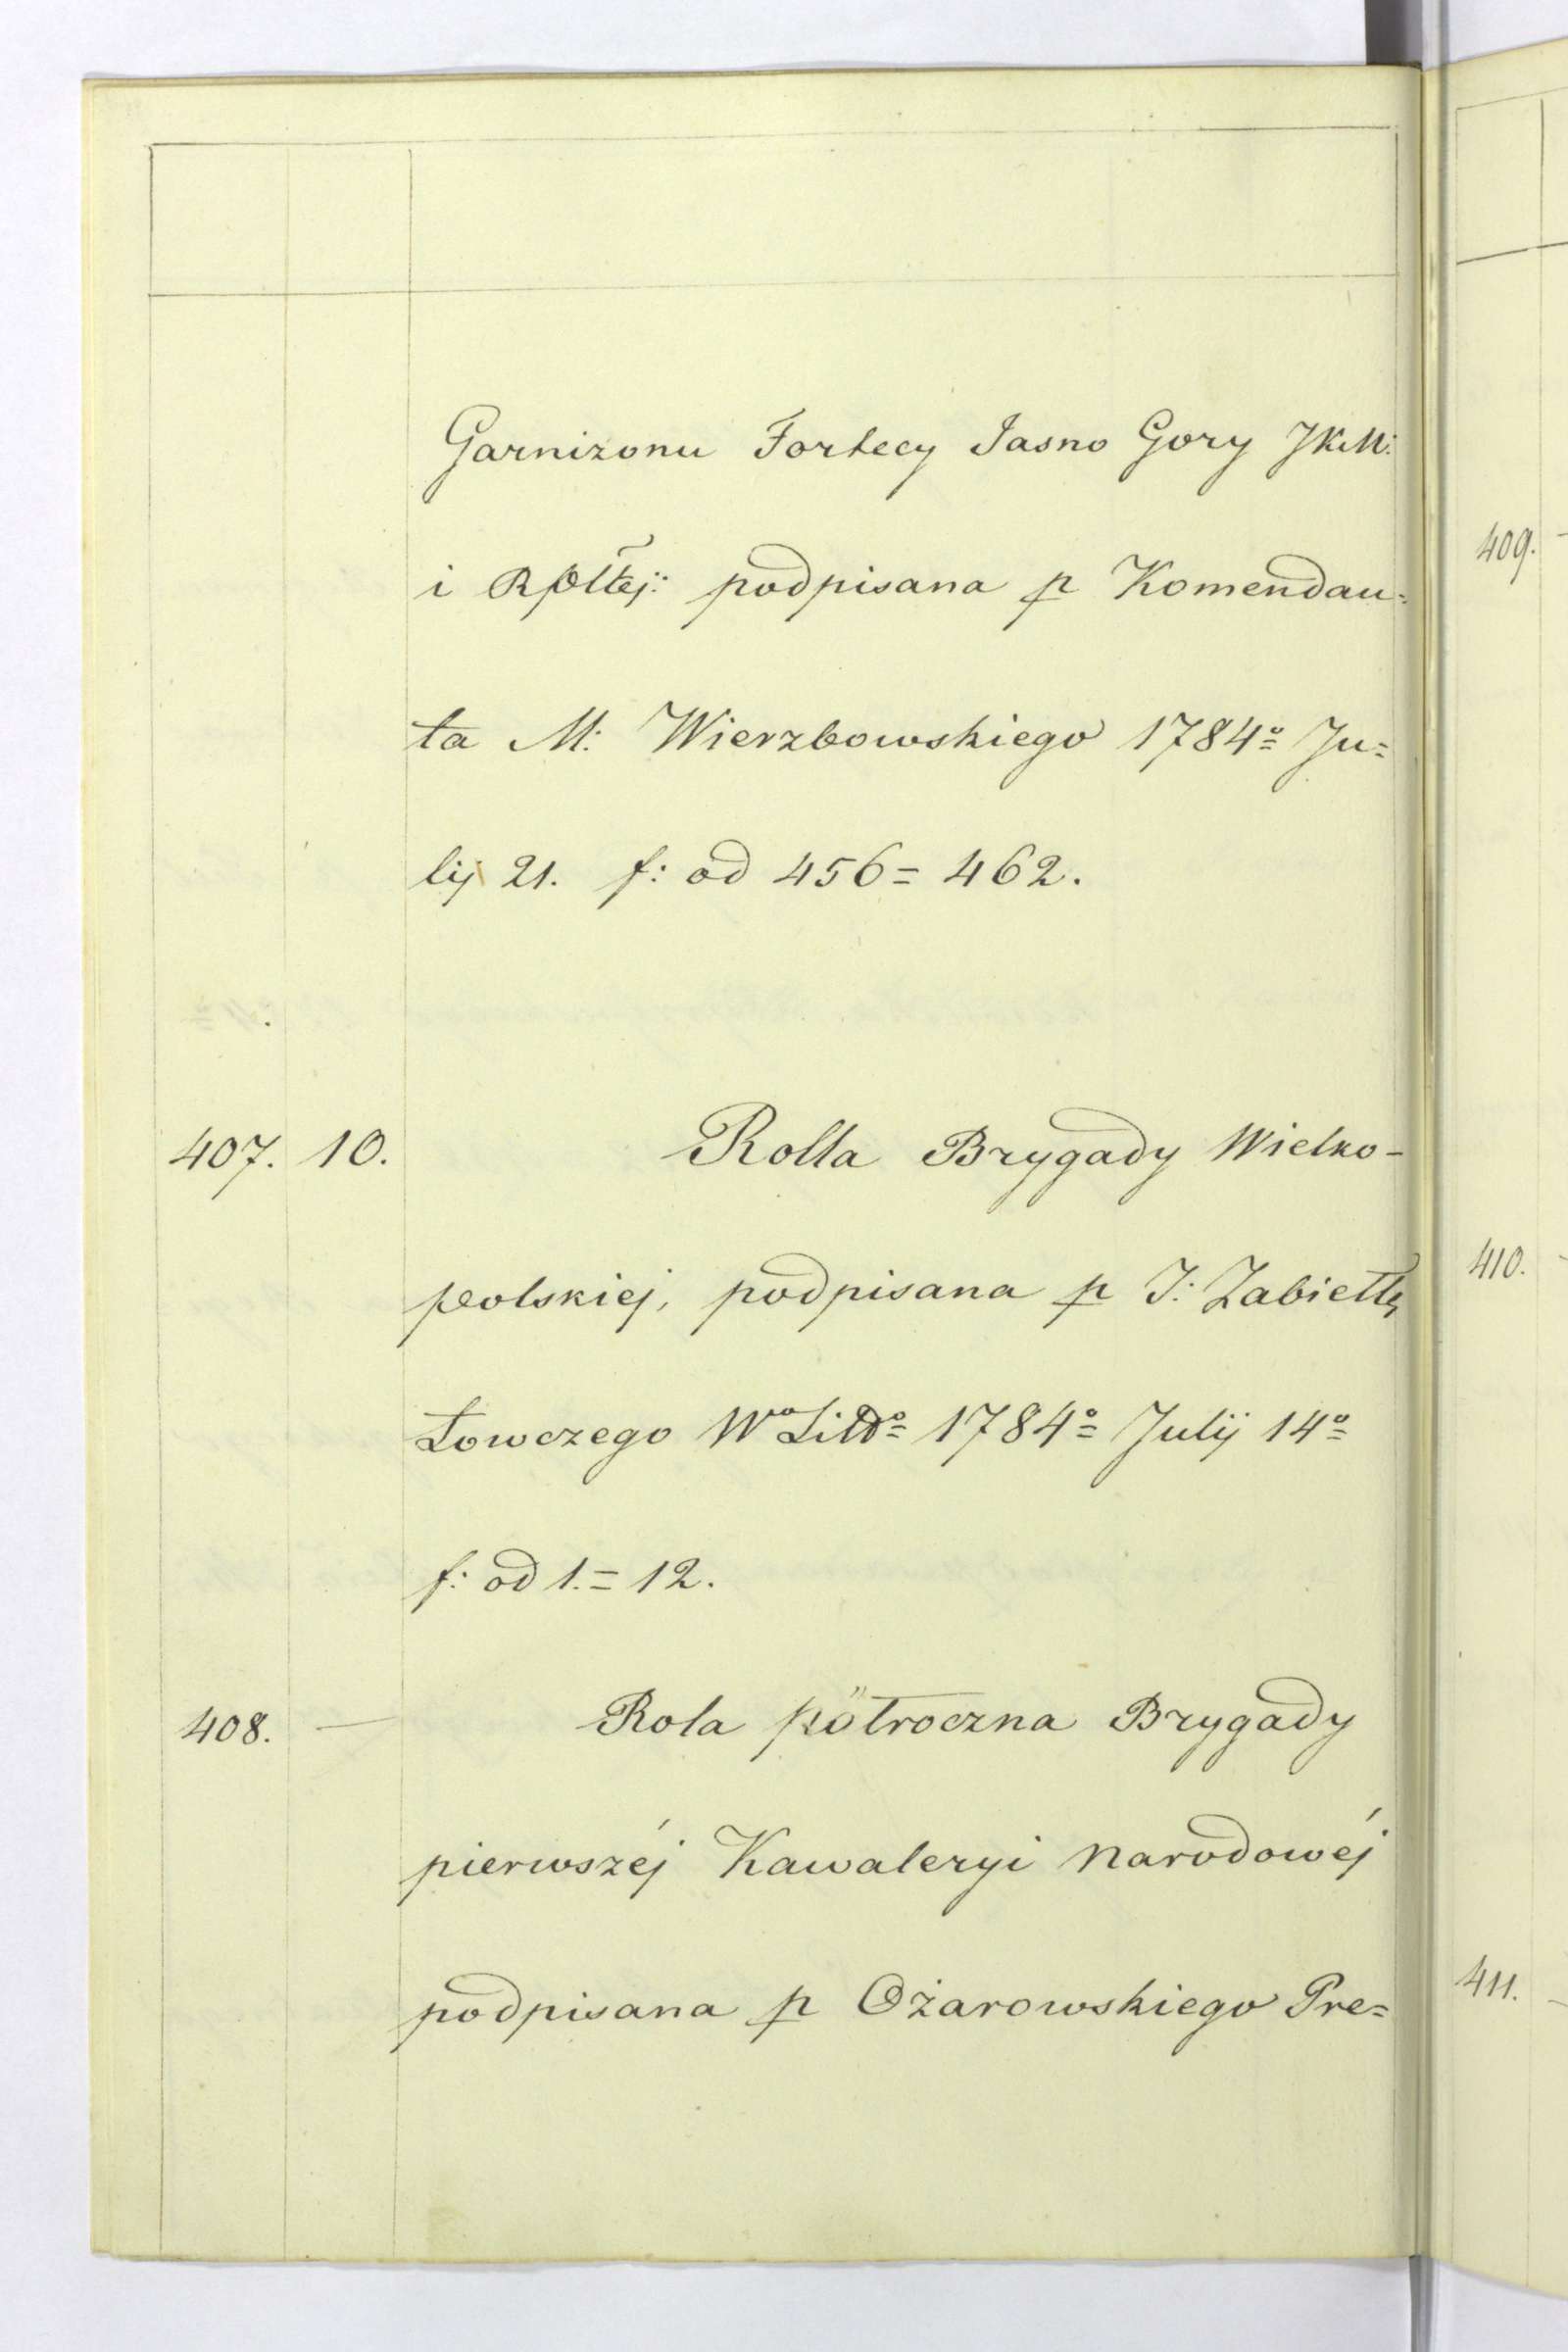 Garnizonu Fortecy Jasno Gory JKM:
i Rpltej: podpisana p Komendan=
ta M: Wierzbowskiego 1784º Ju=
lij 21. f: od 456=462.
407. 10. Rolla Brygady Wielko-
polskiej, podpisana p J: Zabiełłę
Łowczego Wº Littº 1784º Julij 14º
f: od 1.=12.
408. — Rola półroczna Brygady
pierwszéj Kawaleryi Narodowéj
podpisana p Ożarowskiego Pre=
409.
410.
411.